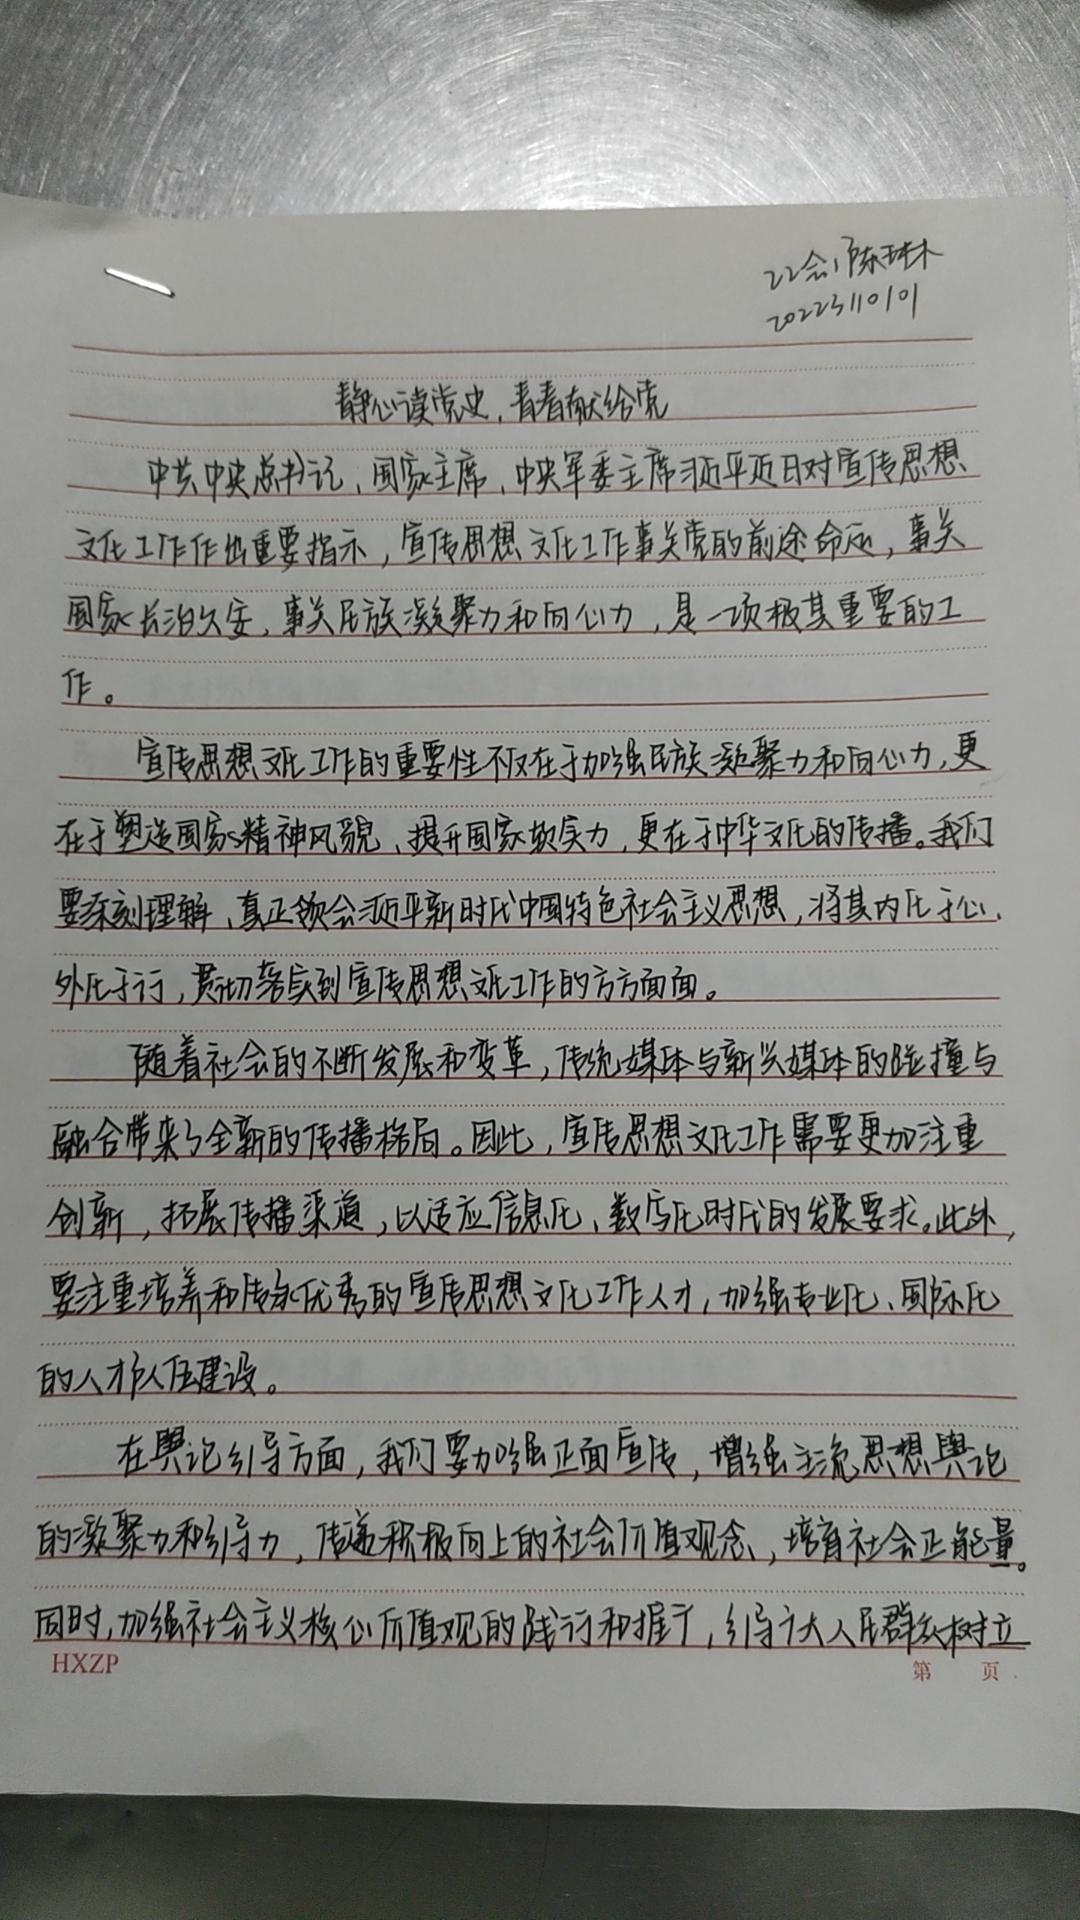 22会1陈琳
20223110101
静心读党史，青春献给党
中共中央总书记、国家主席、中央军委主席习近平近日对宣传思想
文化工作作出重要指示，宣传思想文化工作事关党的前途命运，事关
国家长治久安，事关民族凝聚力和向心力，是一项极其重要的工
作。
宣传思想文化工作的重要性不仅在于加强民族凝聚力和向心力，更
在于塑造国家精神风貌、提升国家软实力，更在于中华文化的传播。我们
要深刻理解、真正领会习近平新时代中国特色社会主义思想，将其内化于心、
外化于行，贯彻落实到宣传思想文化工作的方方面面。
随着社会的不断发展和变革，传统媒体与新兴媒体的碰撞与
融合带来了全新的传播格局。因此，宣传思想文化工作需要更加注重
创新，拓展传播渠道，以适应信息化、数字化时代的发展要求。此外，
要注重培养和传承优秀的宣传思想文化工作人才，加强专业化、国际化
的人才队伍建设。
在舆论引导方面，我们要加强正面宣传，增强主流思想舆论
的凝聚力和引导力，传递积极向上的社会价值观念，培育社会正能量。
同时，加强社会主义核心价值观的践行和推广，引导广大人民群众树立
HXZP
第 页